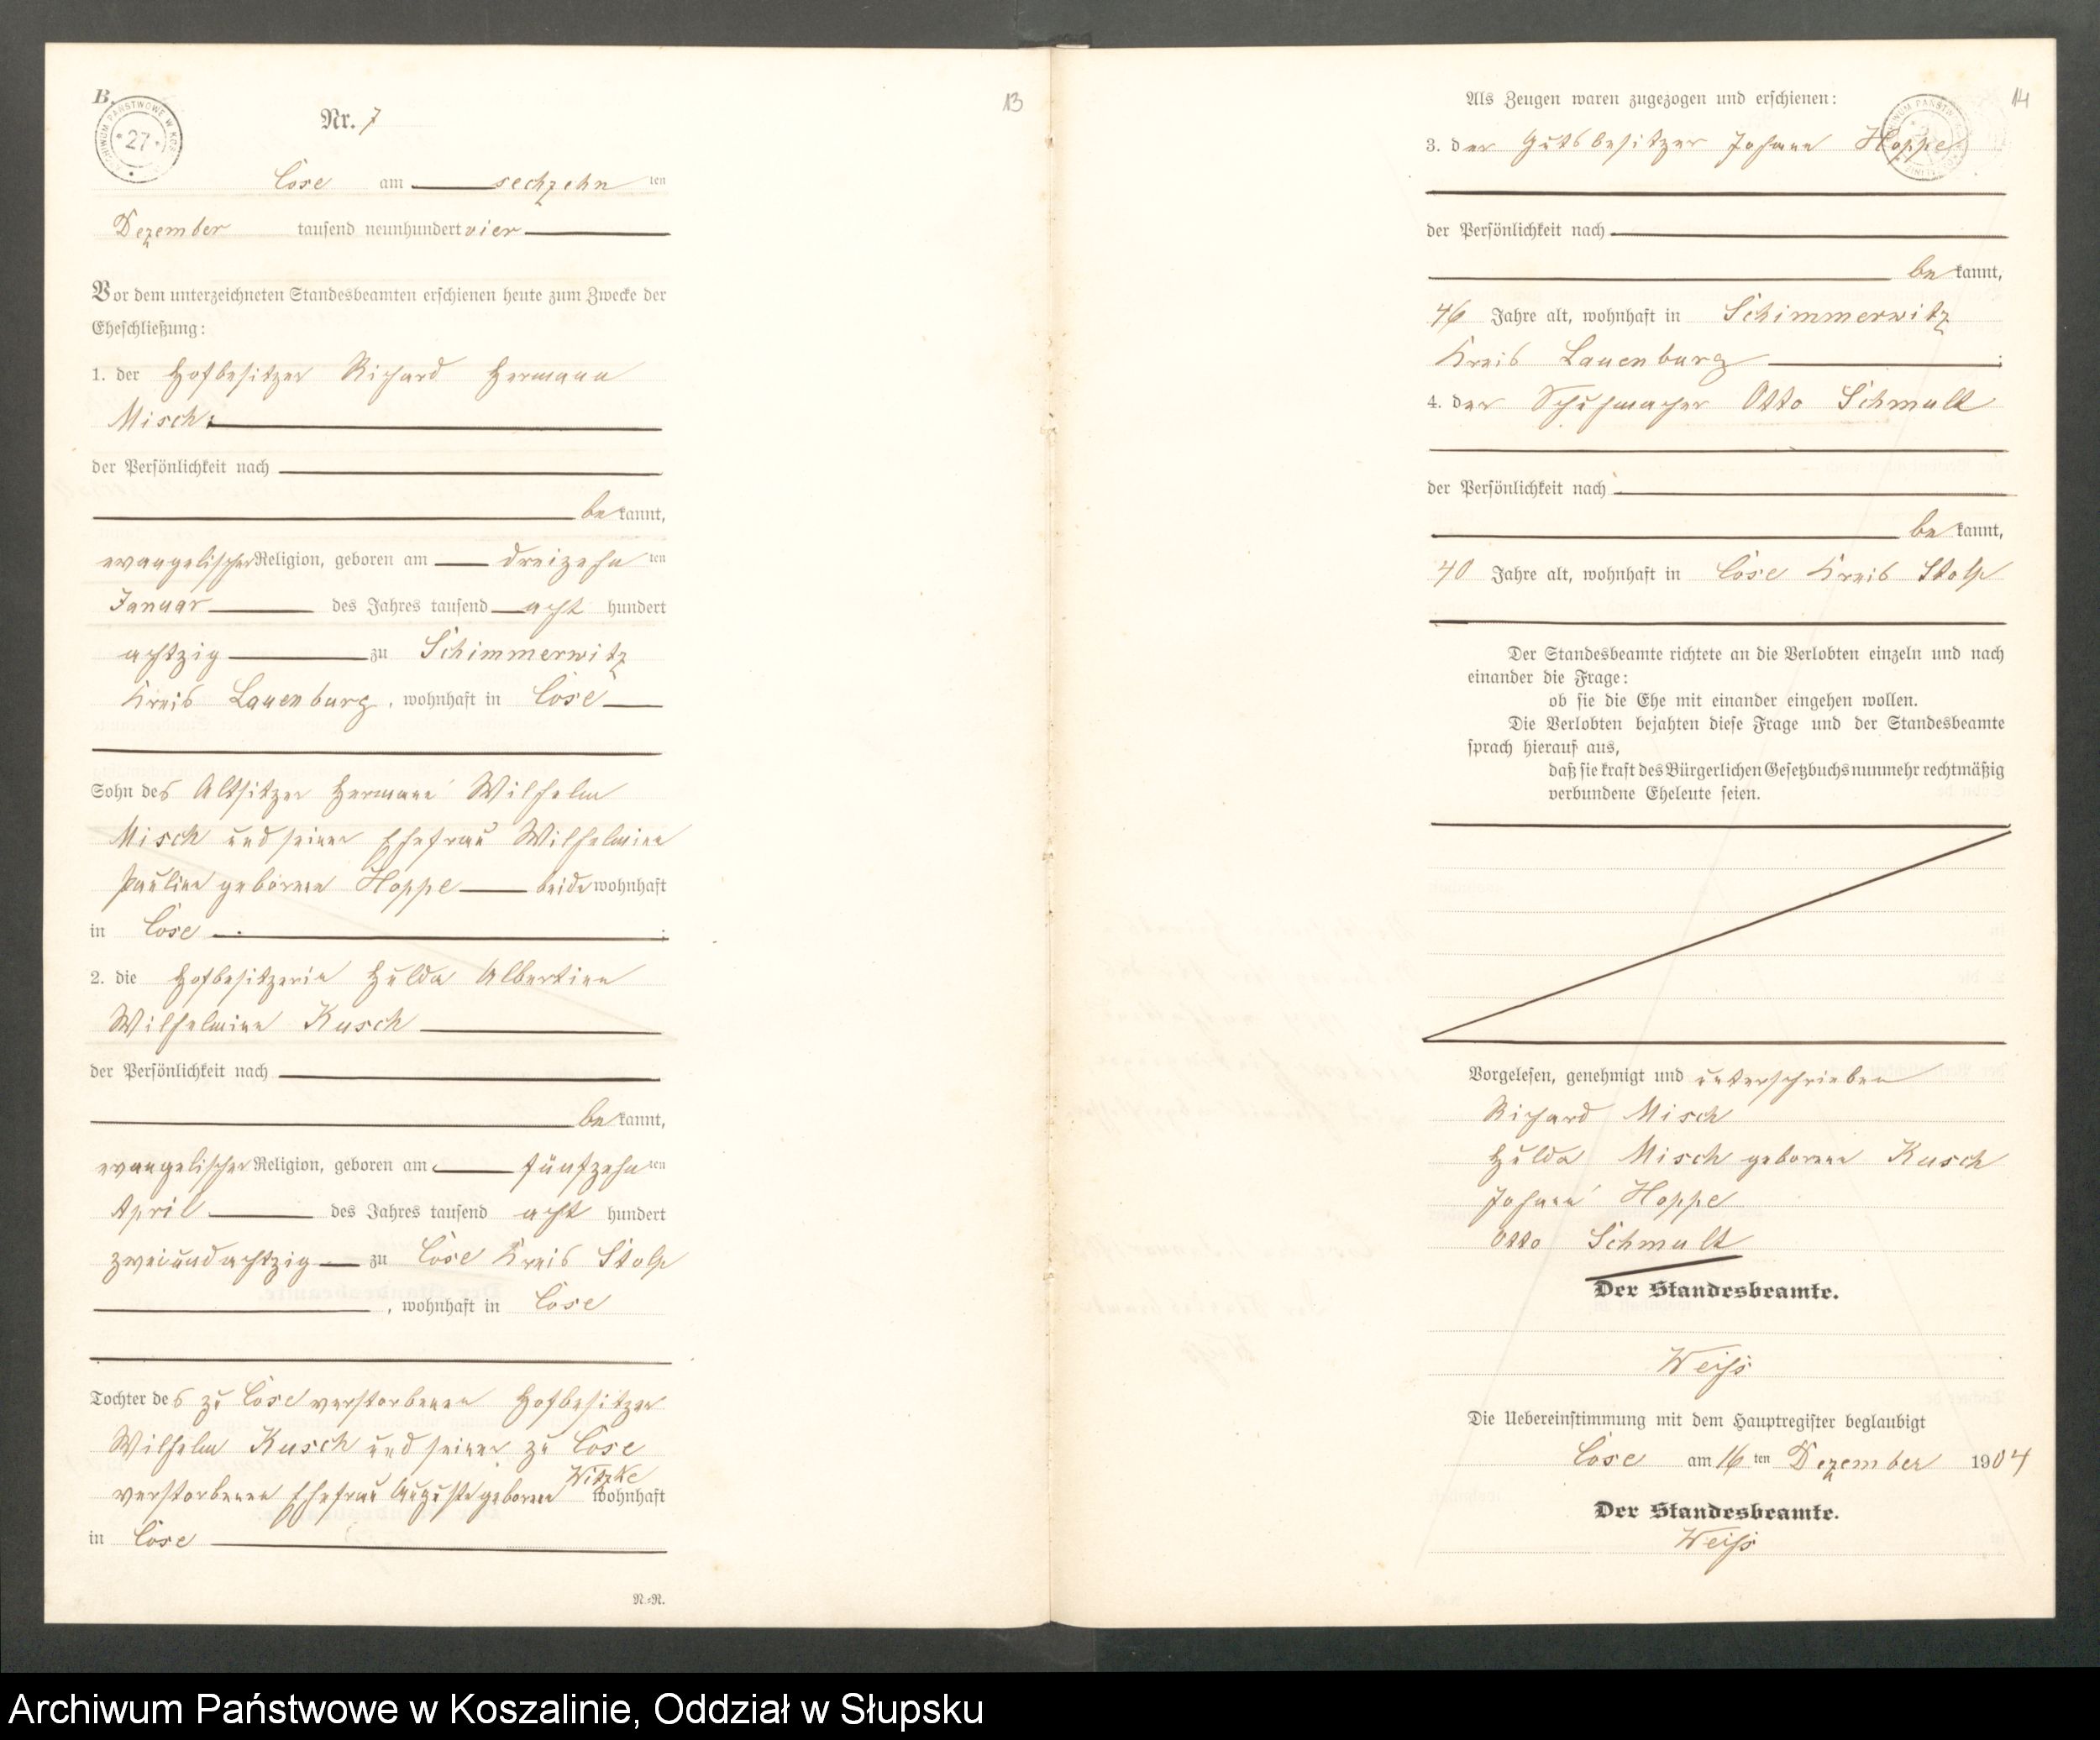 B.
Nr. 7
13
Cose am sechzehn ten
Dezember tausend neunhundert vier
Vor dem unterzeichneten Standesbeamten erschienen heute zum Zwecke der
Eheschließung:
1. der Hofbesitzer Richard Hermann
Misch
der Persönlichkeit nach
be kannt,
evangelischer Religion, geboren am dreizehn ten
Januar des Jahres tausend acht hundert
achtzig zu Schimmerwitz
Kreis Lauenburg, wohnhaft in Cose
Sohn des Altsitzer Hermann Wilhelm
Misch und seiner Ehefrau Wilhelmine
Pauline geborene Hoppe beide wohnhaft
in Cose ;
2. die Hofbesitzerin Hulda Albertine
Wilhelmine Kusch
der Persönlichkeit nach
be kannt,
evangelischer Religion, geboren am fünfzehn ten
April des Jahres tausend acht hundert
zweiundachtzig zu Cose Kreis Stolp
, wohnhaft in Cose
Tochter des zu Cose verstorbenen Hofbesitzer
Wilhelm Kusch und seiner zu Cose
verstorbenen Ehefrau Auguste geborene Witzke wohnhaft
in Cose
N.=N.
14
Als Zeugen waren zugezogen und erschienen:
3. der Gutsbesitzer Johann Hoppe
der Persönlichkeit nach
be kannt,
46 Jahre alt, wohnhaft in Schimmerwitz
Kreis Lauenburg ;
4. der Schuhmacher Otto Schmalt
der Persönlichkeit nach
be kannt,
40 Jahre alt, wohnhaft in Cose Kreis Stolp
Der Standesbeamte richtete an die Verlobten einzeln und nach
einander die Frage:
ob sie die Ehe mit einander eingehen wollen.
Die Verlobten bejahten diese Frage und der Standesbeamte
sprach hierauf aus,
daß sie kraft des Bürgerlichen Gesetzbuchs nunmehr rechtmäßig
verbundene Eheleute seien.
Vorgelesen, genehmigt und unterschrieben
Richard Misch
Hulda Misch geborene Kusch
Johann Hoppe
Otto Schmalt
Der Standesbeamte.
Weiß
Die Uebereinstimmung mit dem Hauptregister beglaubigt
Cose am 16 ten Dezember 1904
Der Standesbeamte.
Weiß
Archiwum Państwowe w Koszalinie, Oddział w Słupsku